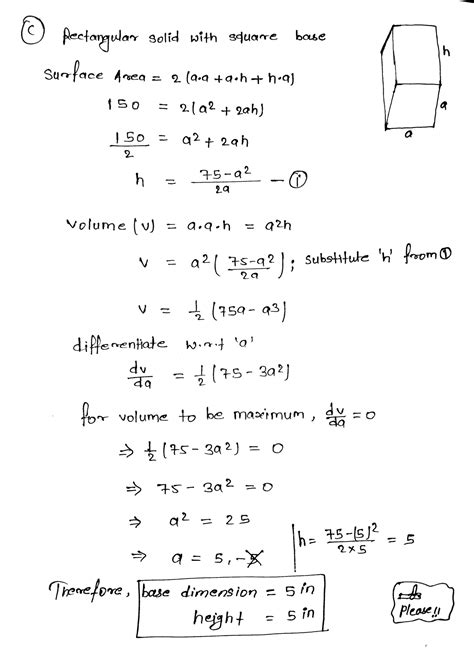 (c) Rectangular solid with square base
h
a
a
Surface Area = 2 (a.a + a.h + h.a)
150 = 2(a² + 2ah)
150/2 = a² + 2ah
h = (75-a²)/2a — ①
Volume (v) = a.a.h = a²h
v = a² ( (75-a²)/2a ) ; substitute 'h' from ①
v = 1/2 (75a - a³)
differentiate w.r.t 'a'
dv/da = 1/2 (75 - 3a²)
for volume to be maximum, dv/da = 0
⇒ 1/2 (75 - 3a²) = 0
⇒ 75 - 3a² = 0
⇒ a² = 25
⇒ a = 5, -5
h = (75-(5)²)/(2×5) = 5
Therefore, base dimension = 5 in
height = 5 in
Please!!